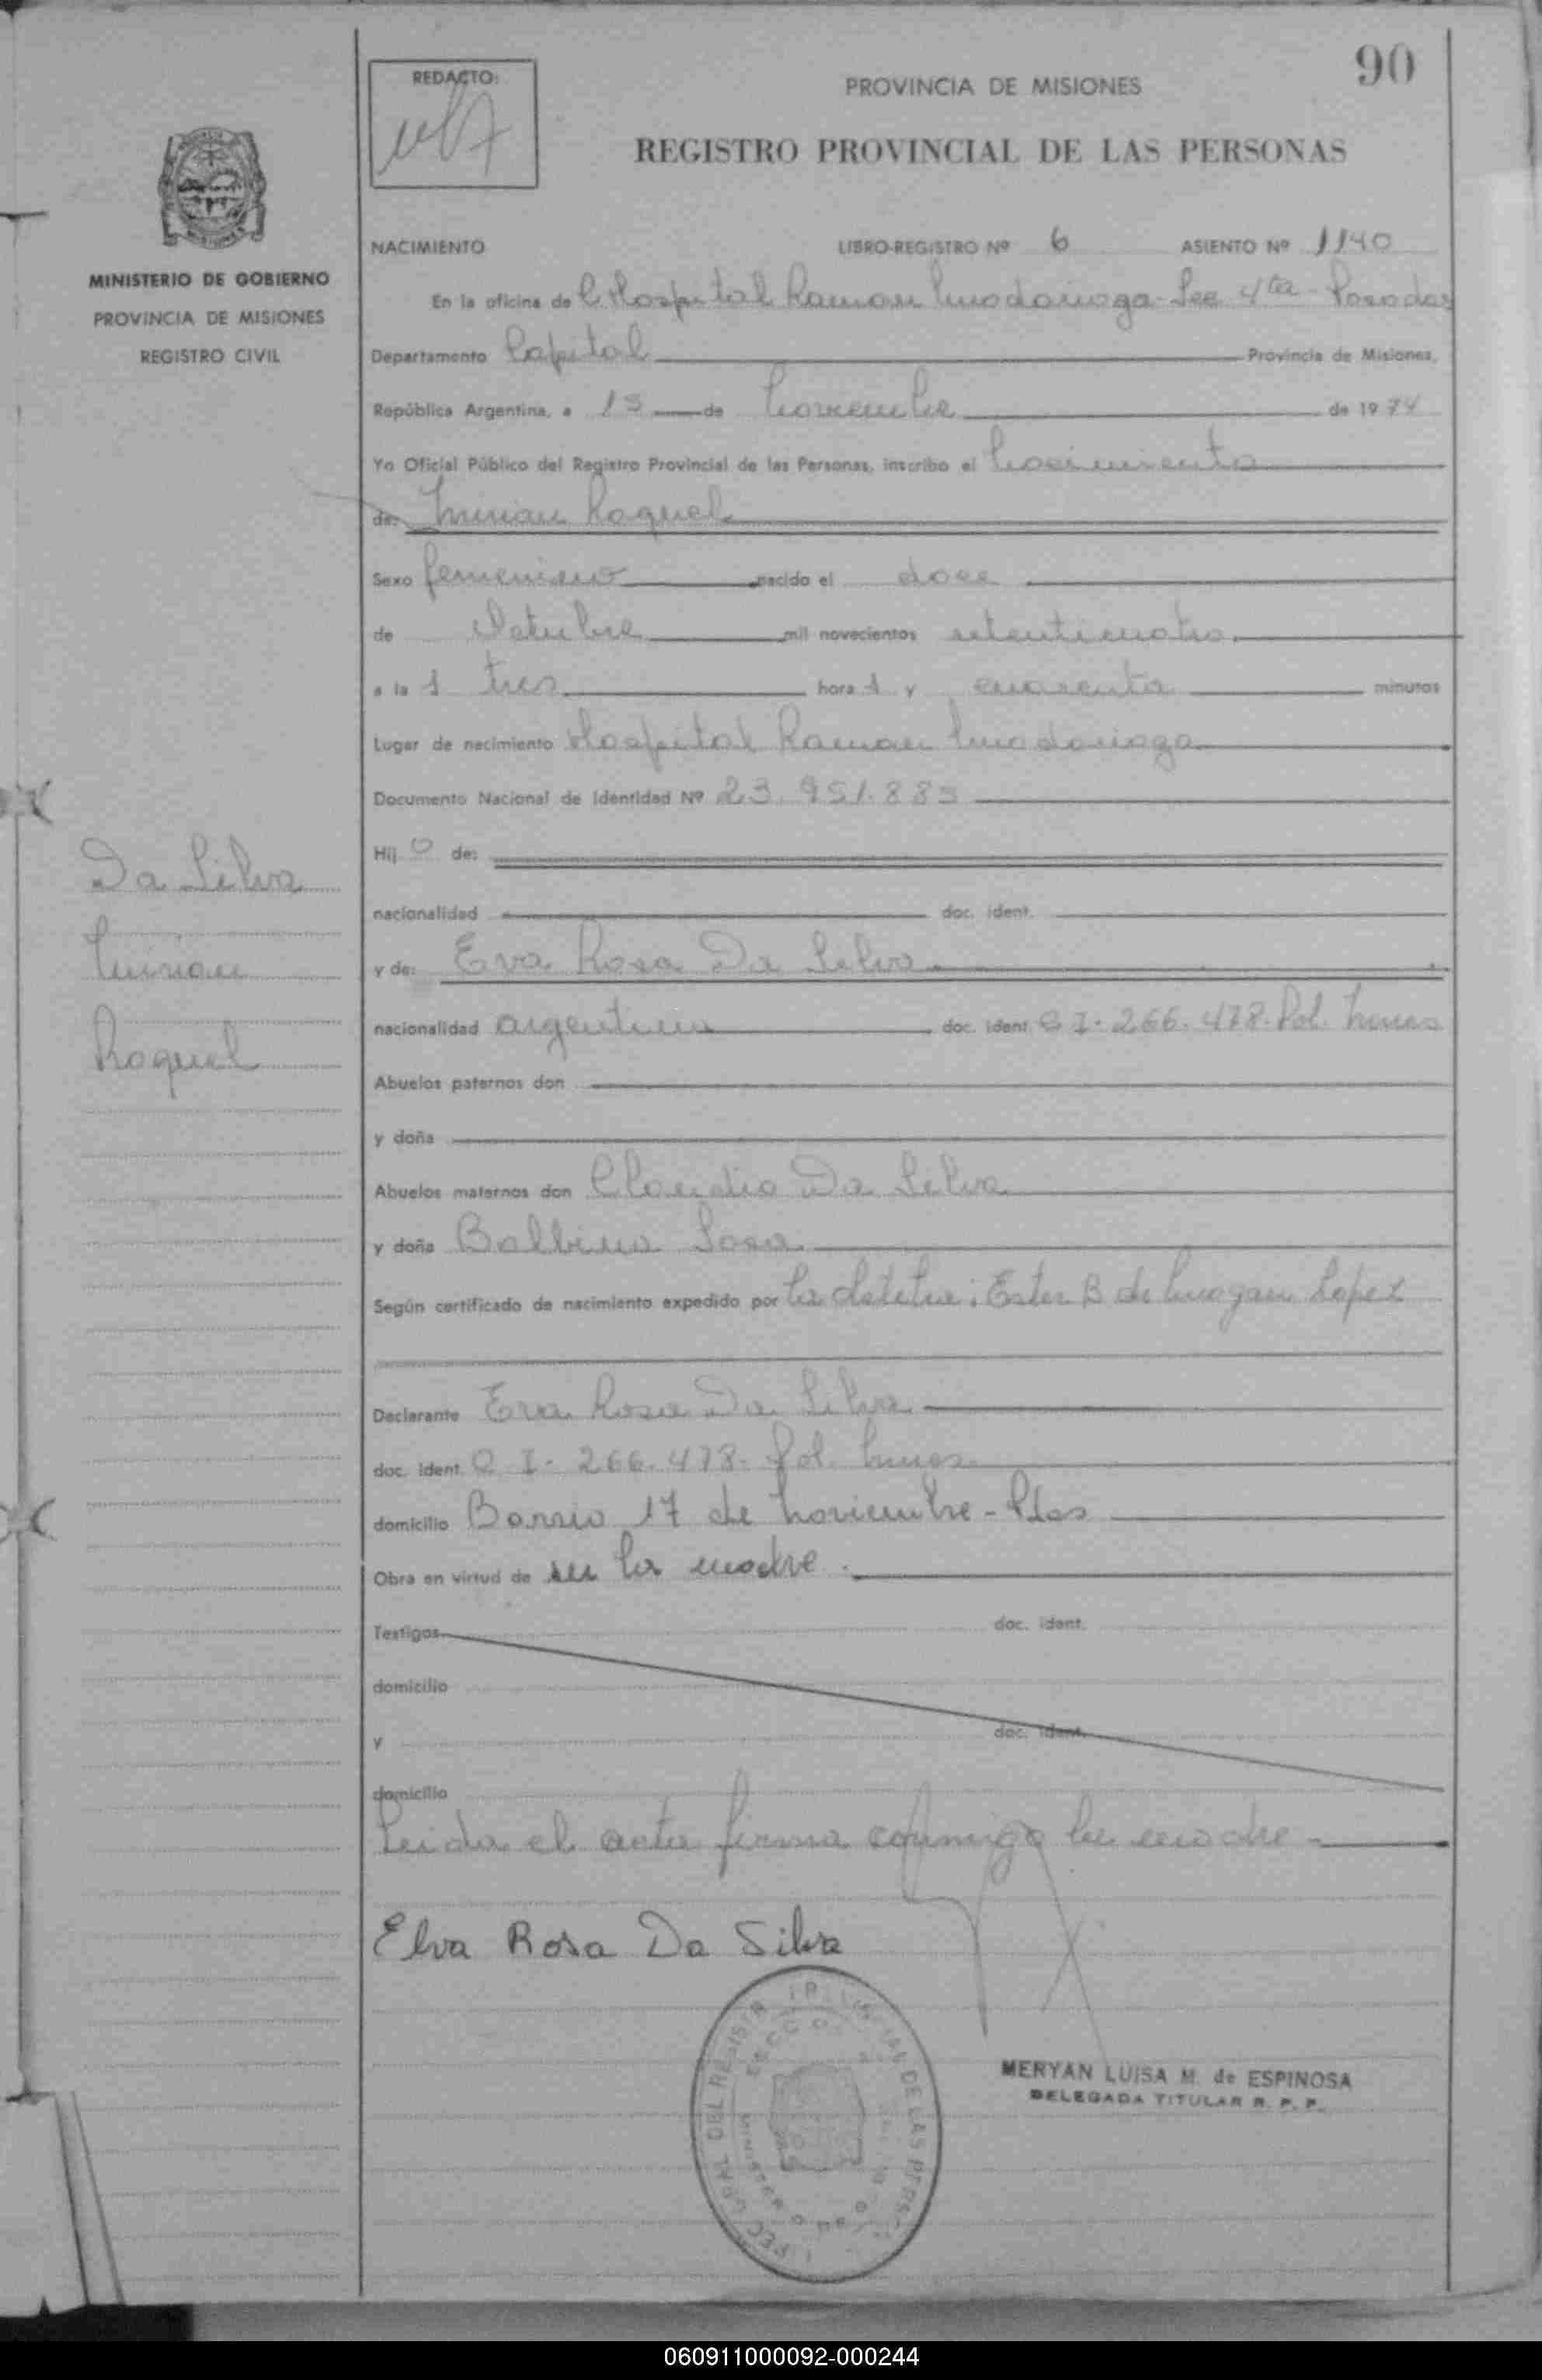 90
REDACTO:
PROVINCIA DE MISIONES
REGISTRO PROVINCIAL DE LAS PERSONAS
MINISTERIO DE GOBIERNO
PROVINCIA DE MISIONES
REGISTRO CIVIL
NACIMIENTO LIBRO-REGISTRO Nº 6 ASIENTO Nº 1140
En la oficina de Hospital Ramon Madariaga - Sec 4ta - Posadas
Departamento Capital Provincia de Misiones,
República Argentina, a 15 de Noviembre de 1974
Yo Oficial Público del Registro Provincial de las Personas, inscribo el Nacimiento
de: Mirian Raquel
Sexo femenino nacido el doce
de Octubre mil novecientos setenticuatro
a la s tres hora s y cuarenta minutos
Lugar de nacimiento Hospital Ramon Madariaga
Documento Nacional de Identidad Nº 23.951.885
Hij o de:
nacionalidad doc. ident.
Da Silva
Mirian
Raquel
y de: Eva Rosa Da Silva
nacionalidad argentina doc. ident C I. 266.478. Pol. Mnes
Abuelos paternos don
y doña
Abuelos maternos don Claudio Da Silva
y doña Balbina Sosa
Según certificado de nacimiento expedido por la obstetra: Ester B de Lopez
Declarante Eva Rosa Da Silva
doc. ident. C I. 266.478. Pol. Mnes
domicilio Barrio 17 de Noviembre - Pdas
Obra en virtud de ser la madre.
Testigos doc. ident.
domicilio
y doc. ident.
domicilio
Leida el acta firma conmigo la madre
Elva Rosa Da Silva
MERYAN LUISA M. de ESPINOSA
DELEGADA TITULAR R. P. P.
060911000092-000244